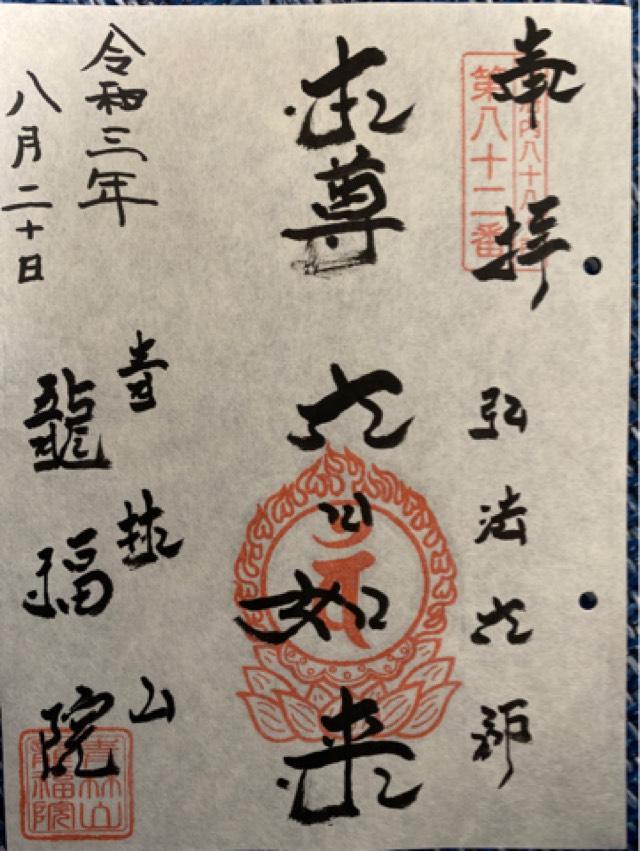 奉拝
第八十二番
弘法大師
本尊
大日如来
青林山
龍福院
令和三年
八月二十日
青林山
龍福院